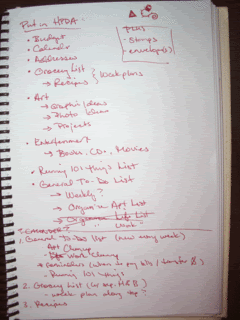 Put in HPDA:
• Budget
• Calendar
• Addresses
• Grocery List
→ Recipes } Week plans
Pens
- Stamps
- envelope(s)
• Art
→ Graphic Ideas
→ Photo Ideas
→ Projects
• Entertainment
→ Books, CDs, Movies
• Running 101 things List
• General To-Do List
→ Weekly?
→ Organize Art List
→ Organize
1. General To-Do List (new every week)
Art Cleanup
Work Cleanup
→ Reminders (when to pay bills / transfer $)
- Running 101 things
2. Grocery List
- week plan along top
3. Recipes